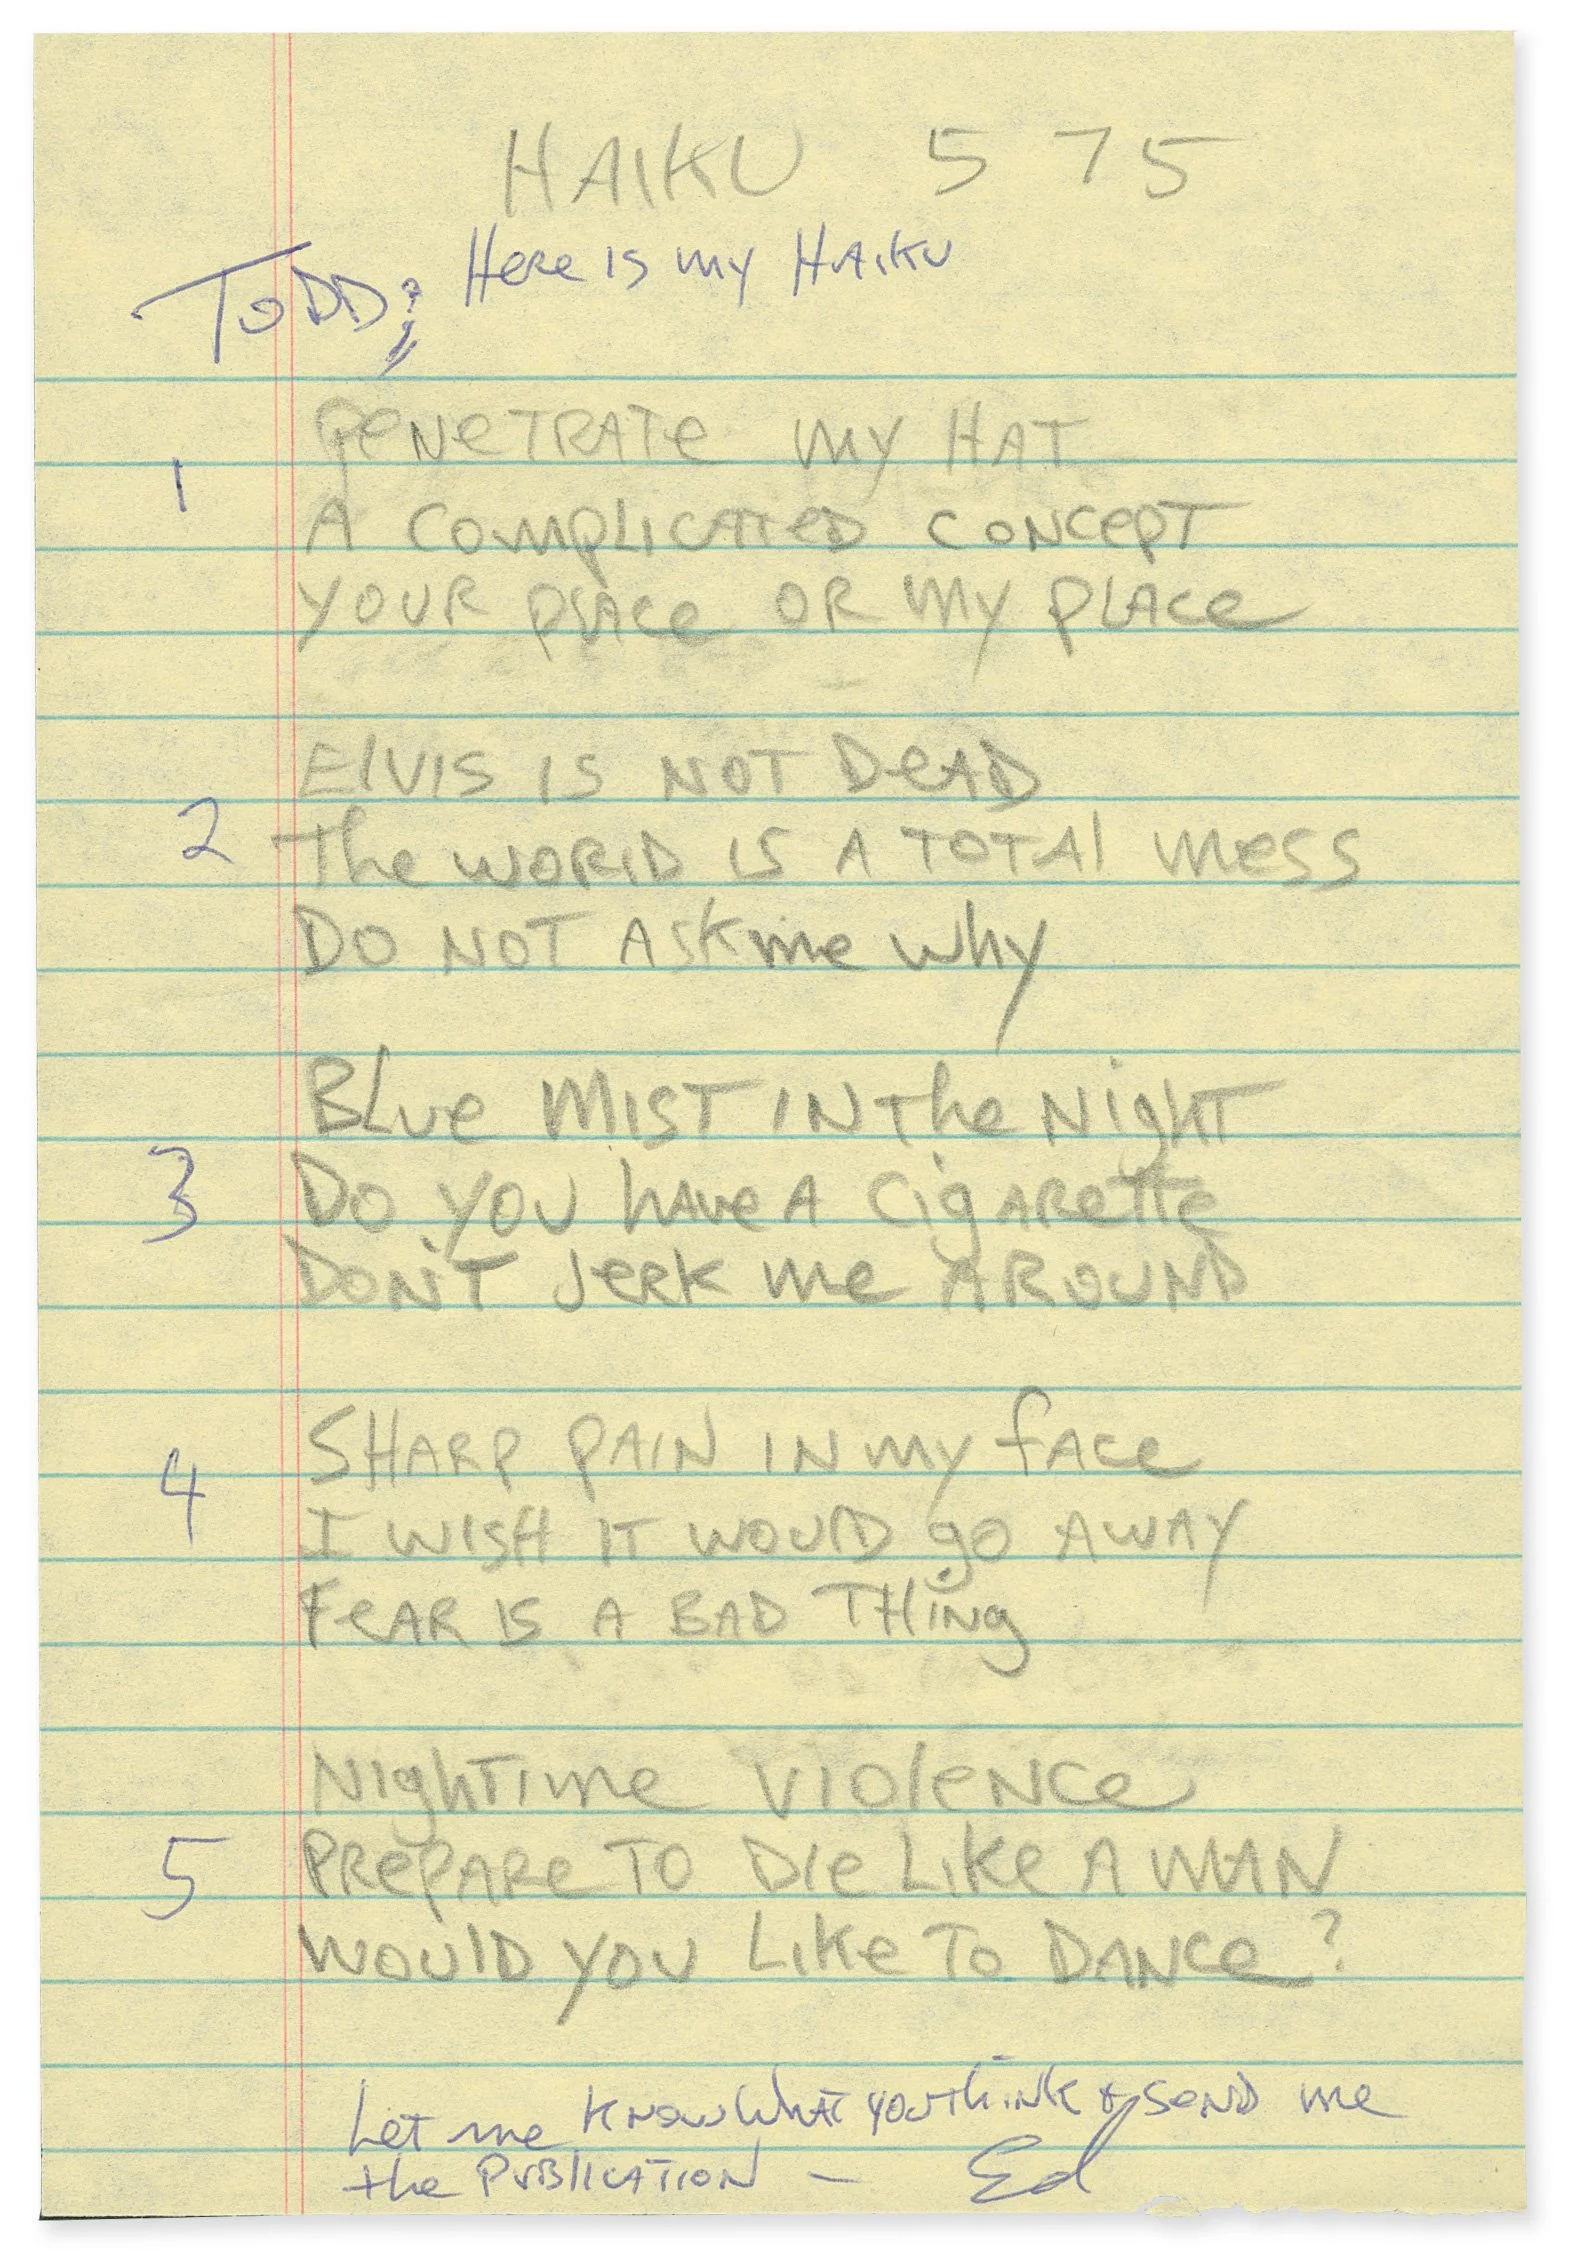 HAIKU 5 7 5
TODD; Here is my HAIKU
1 PENETRATE MY HAT
A COMPLICATED CONCEPT
YOUR PLACE OR MY PLACE
2 ELVIS IS NOT DEAD
The WORLD IS A TOTAL MESS
DO NOT ASK me why
3 BLue MIST IN The NIGHT
DO YOU HAVE A CigARette
DON'T JERK me AROUND
4 SHARP PAIN IN MY FACE
I WISH IT WOULD go AWAY
FEAR IS A BAD THING
5 NighTime VIOLENCE
PREPARE TO DIE LIKE A MAN
WOULD YOU LIKE TO DANCE?
Let me KNOW WHAT YOU THINK & SEND me
the PUBLICATION — Ed